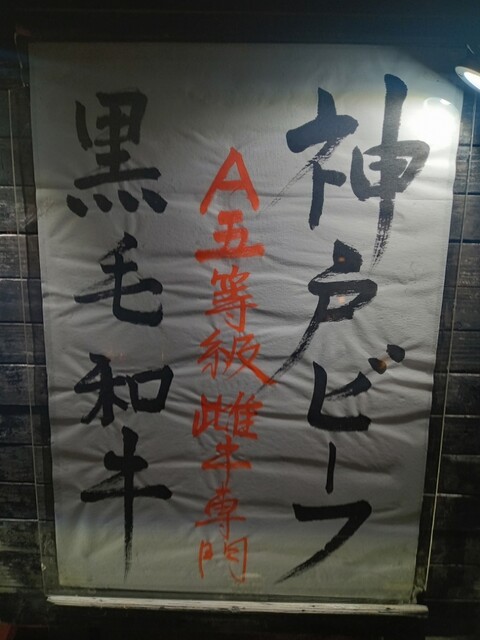 神戸ビーフ
A五等級雌牛専門
黒毛和牛